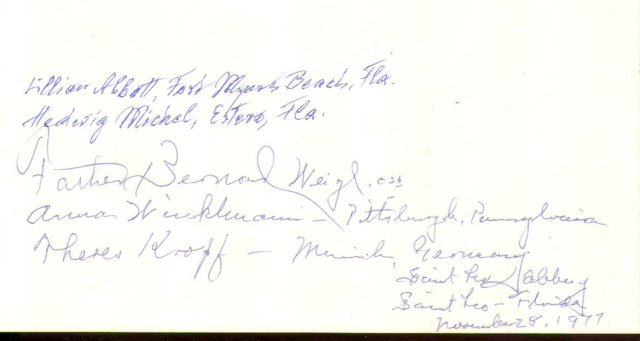 Lillian Abbott, Fort Myers Beach, Fla.
Hedwig Michel, Estero, Fla.
Father Bernard Weigl, OSB
Anna Winklmann - Pittsburgh, Pennsylvania
Theres Kropf - Munich, Germany
Saint Leo Abbey
Saint Leo - Florida
November 28, 1977